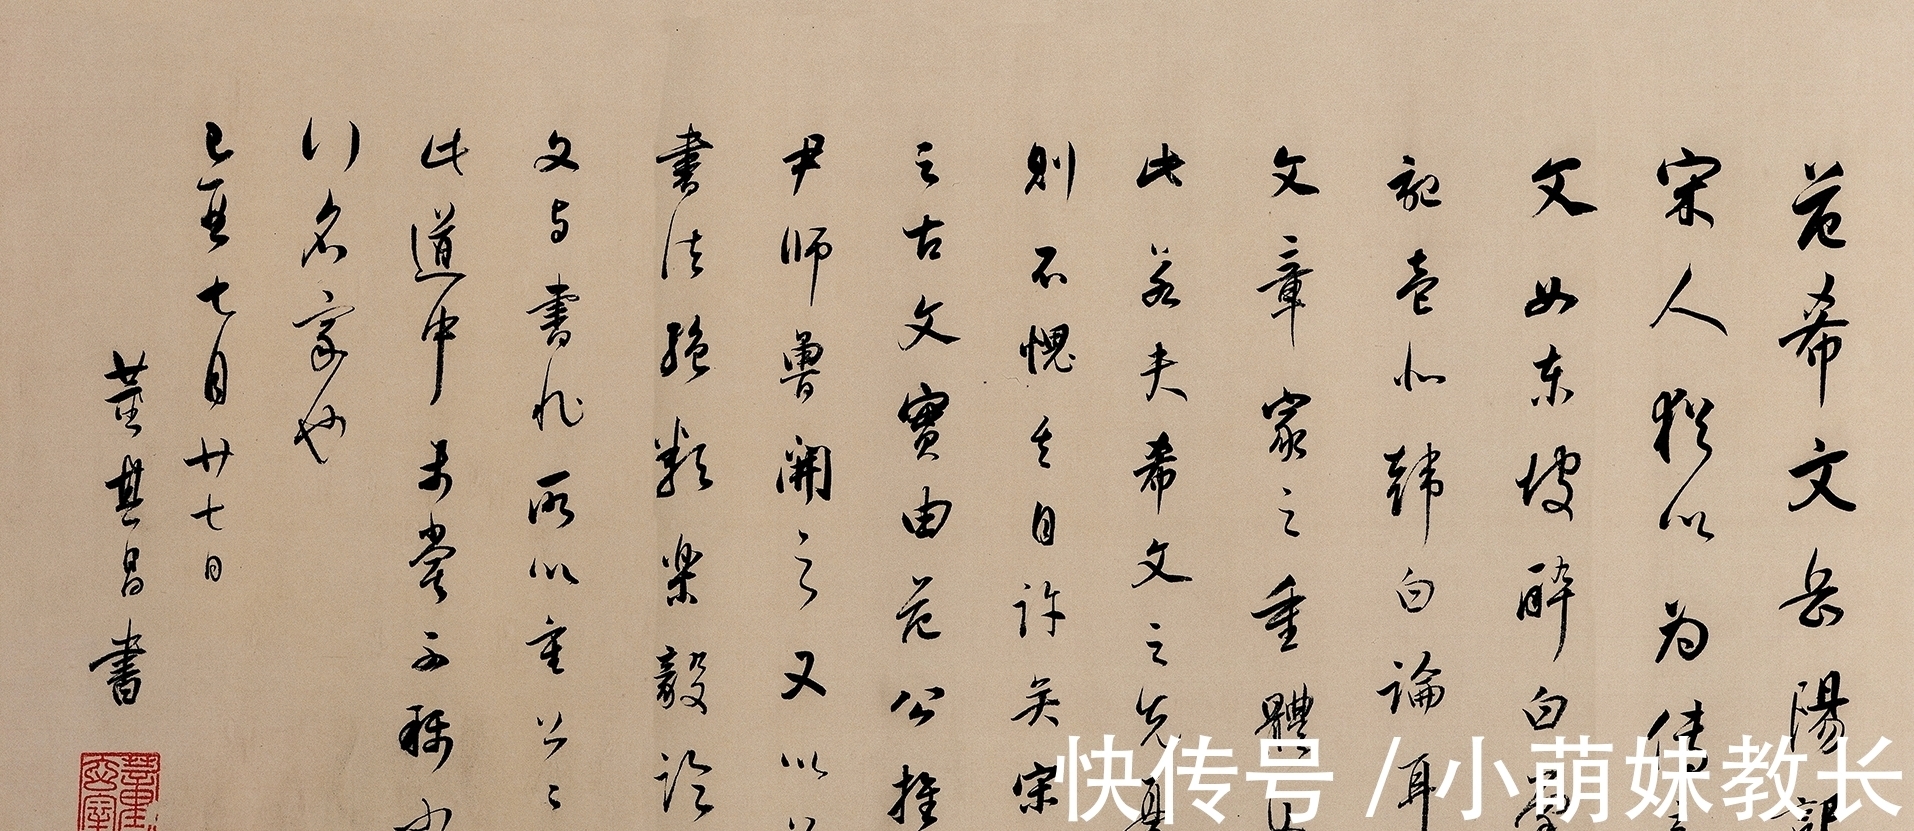 范希文岳陽記
宋人猶以為傳
文如东坡醉白堂
記壹似韩白論耳
文章家之重體
此若夫希文之先
則不愧其自許矣宋
之古文實由范公推
尹師魯開之又以
書法號類樂毅論
文与書非所以重公
此道中未嘗不稱
行名家也
己亥七月廿七日
董其昌書
快传号 / 小萌妹教长